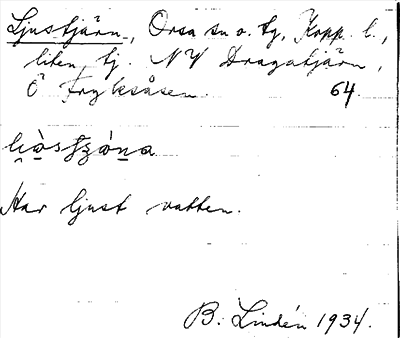 Ljustjärn, Orsa sn o. tg, Kopp. l.,
liten tj. NV Dragatjärn,
Ö Fryksåsen. 64
Har ljust vatten.
B. Lindén 1934.